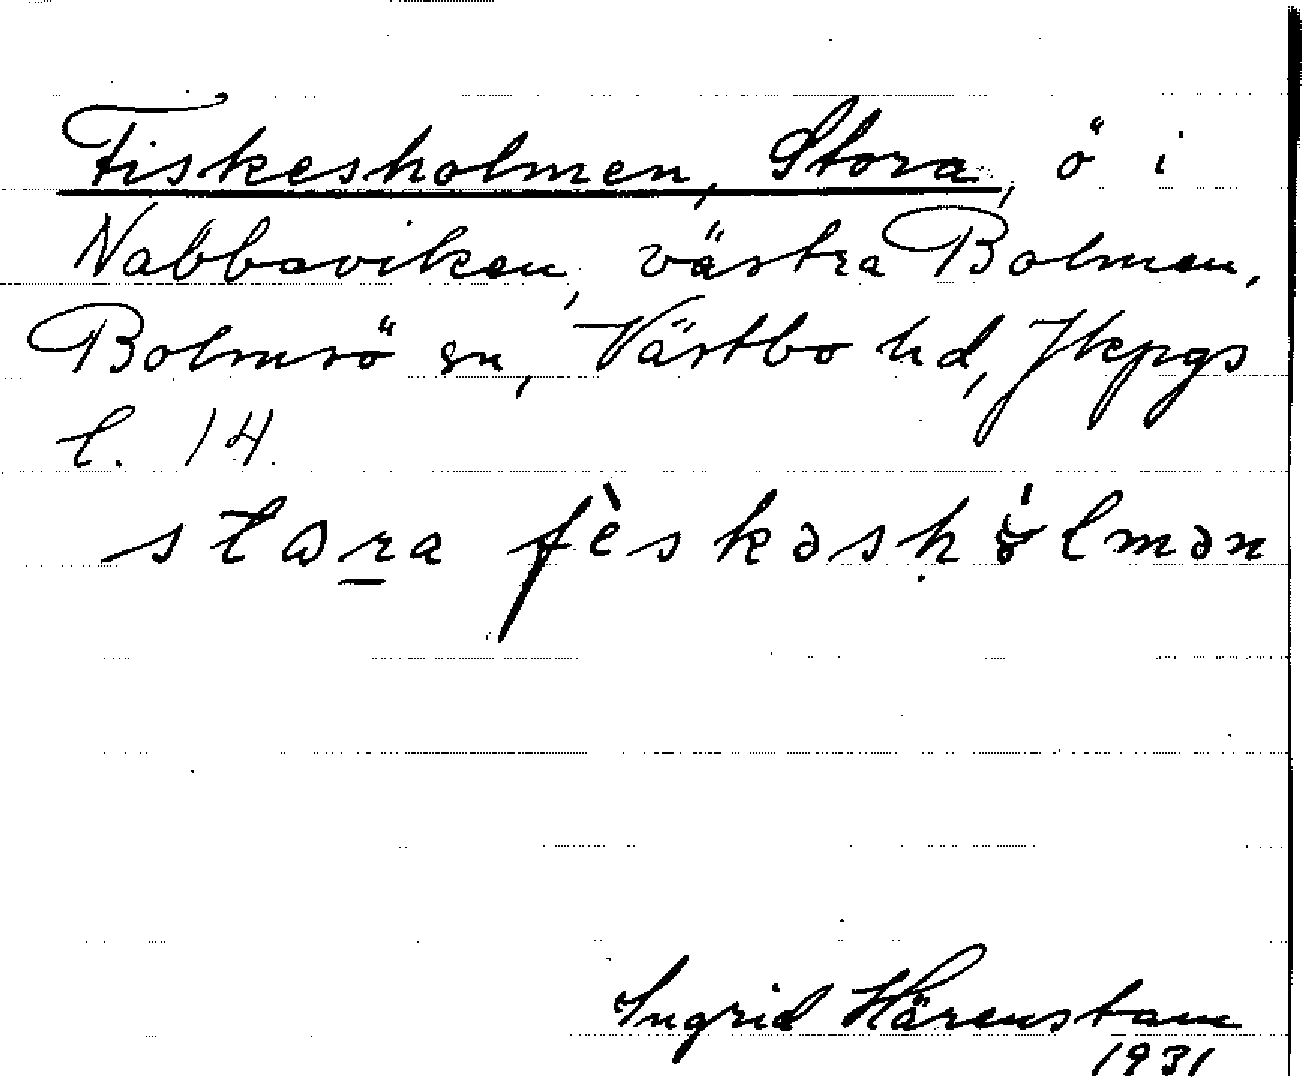 Fiskesholmen, Stora, ö i
Nabbaviken, västra Bolmen,
Bolmsö sn, Västbo hd, Jkpgs
l. 14.
stɷra fèskəshòlmən
Ingrid Härenstam
1931